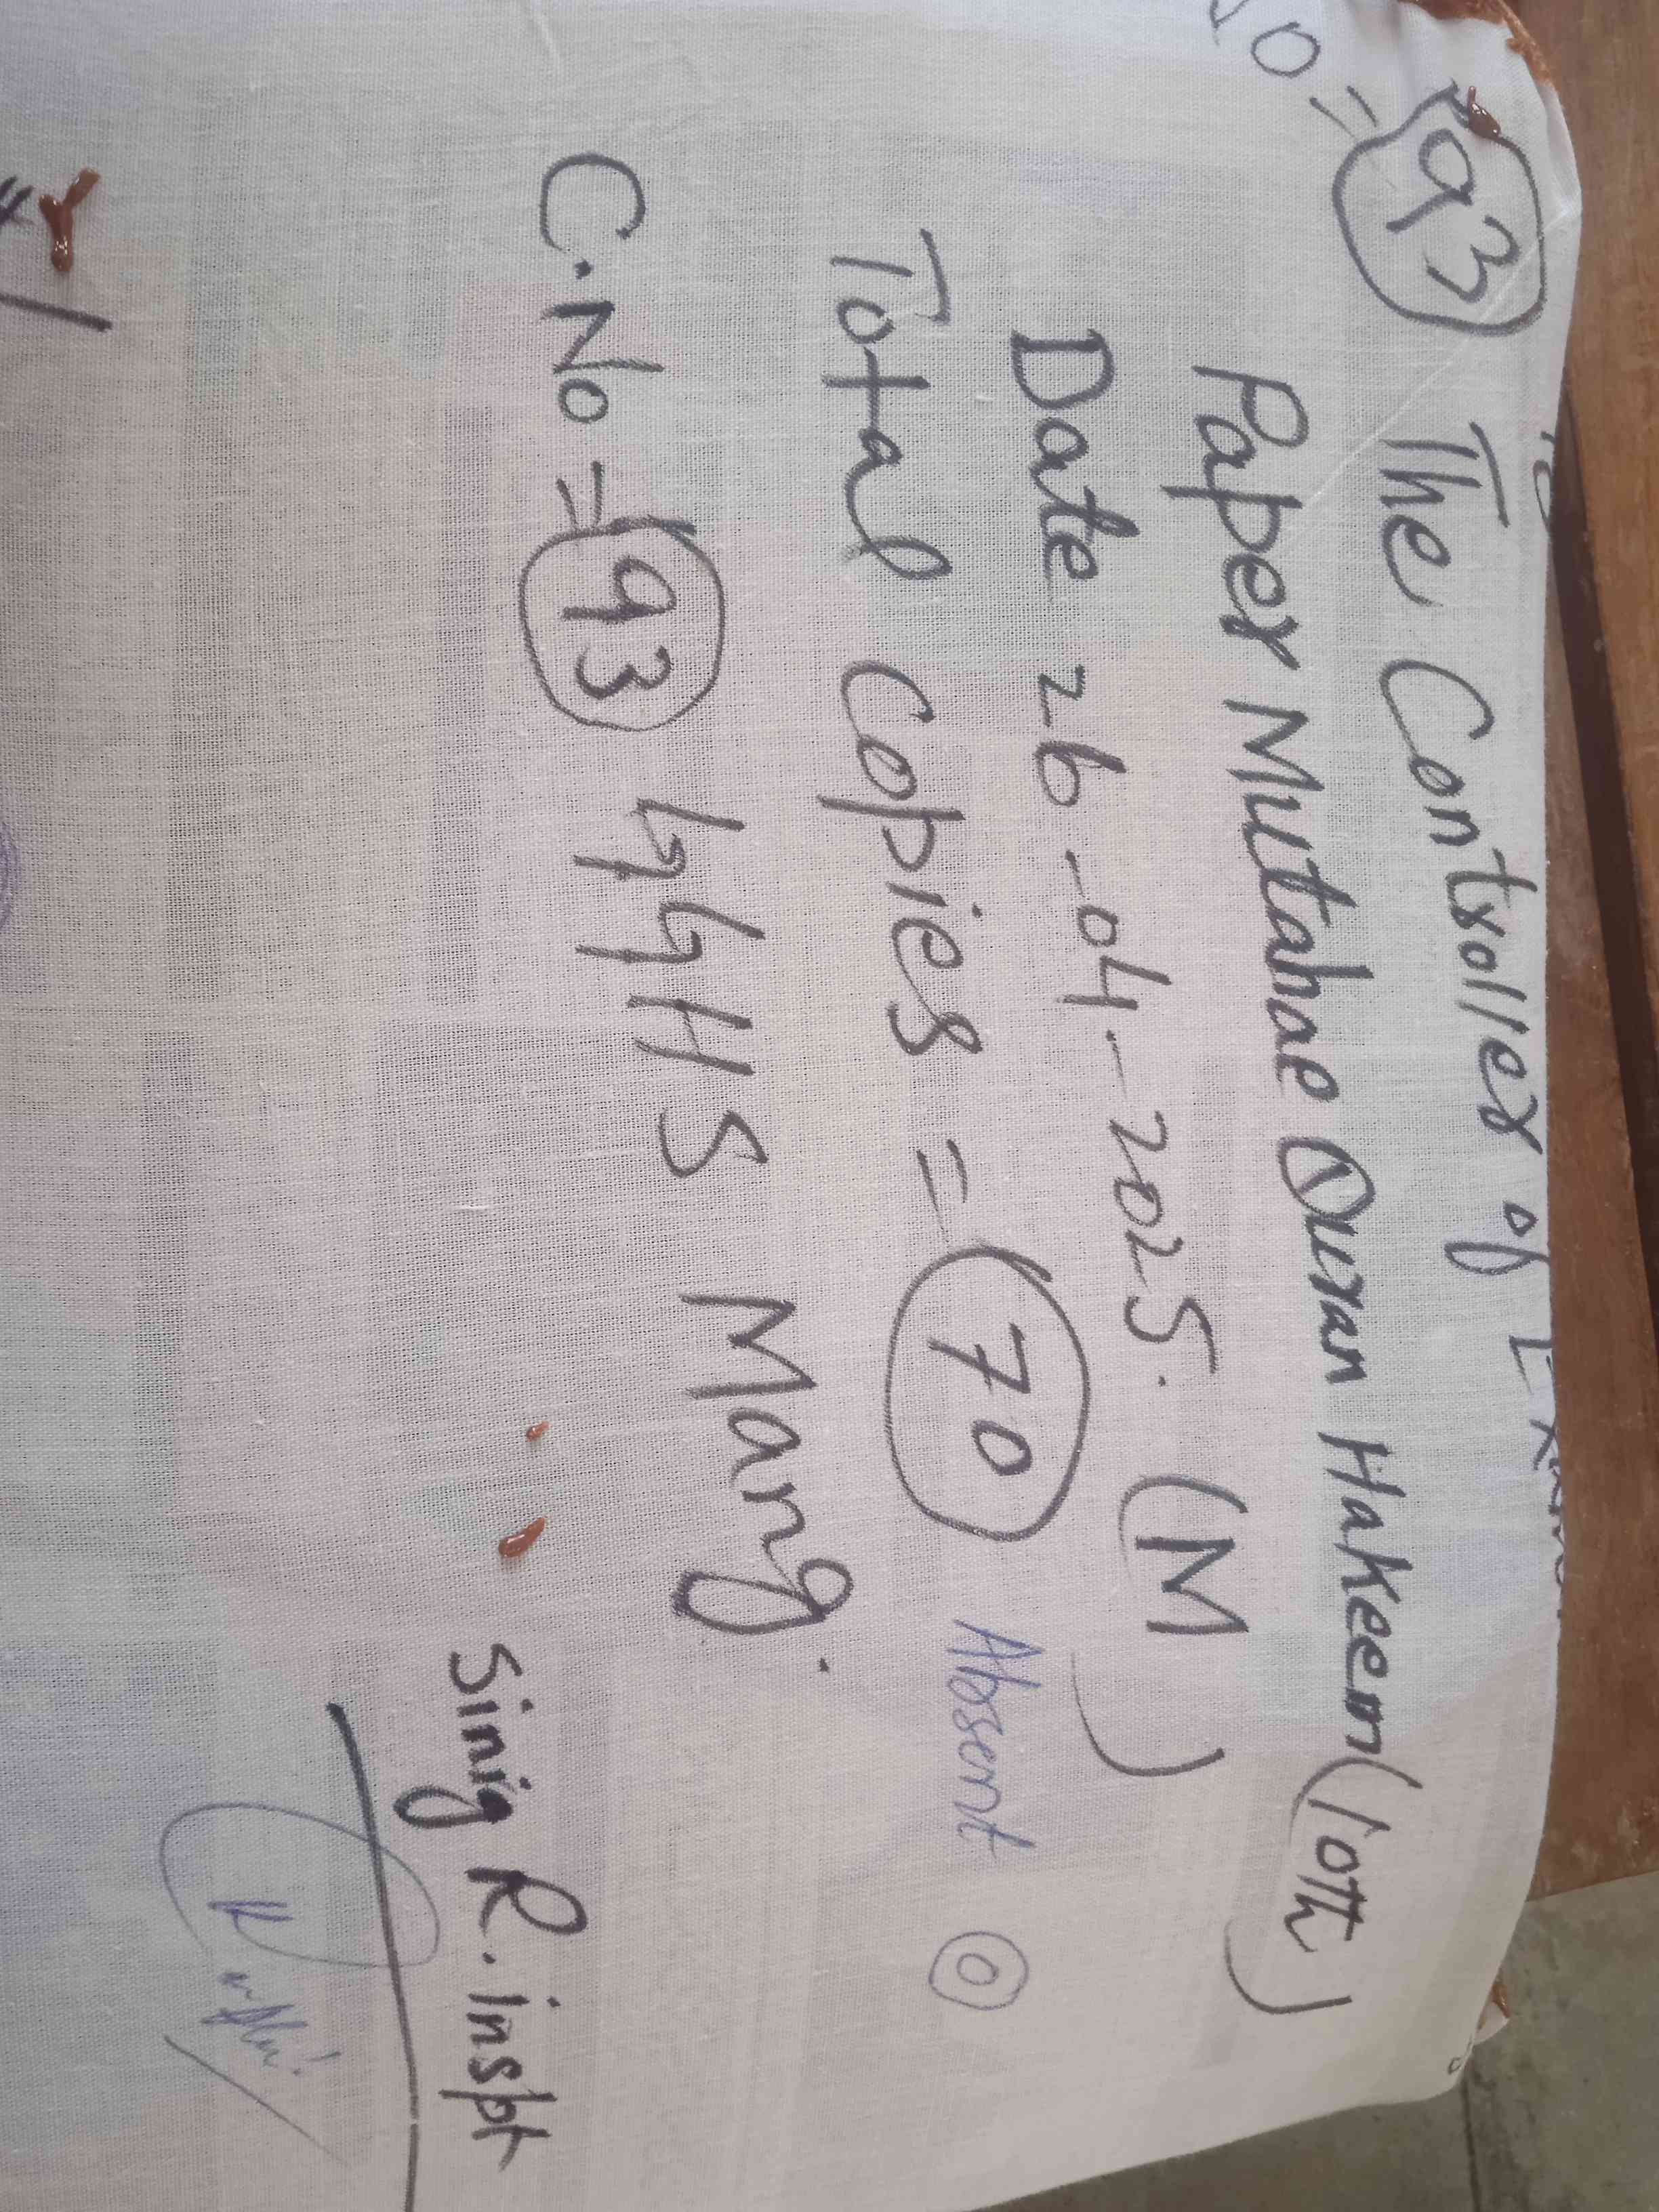 93
The Controller of
Paper Mutahae Quran Hakeem (10th)
Date 26-04-2025. (M)
Total Copies = 70 Absent 0
C.No = 93 GGHS Mang.
Sinig R. inspt